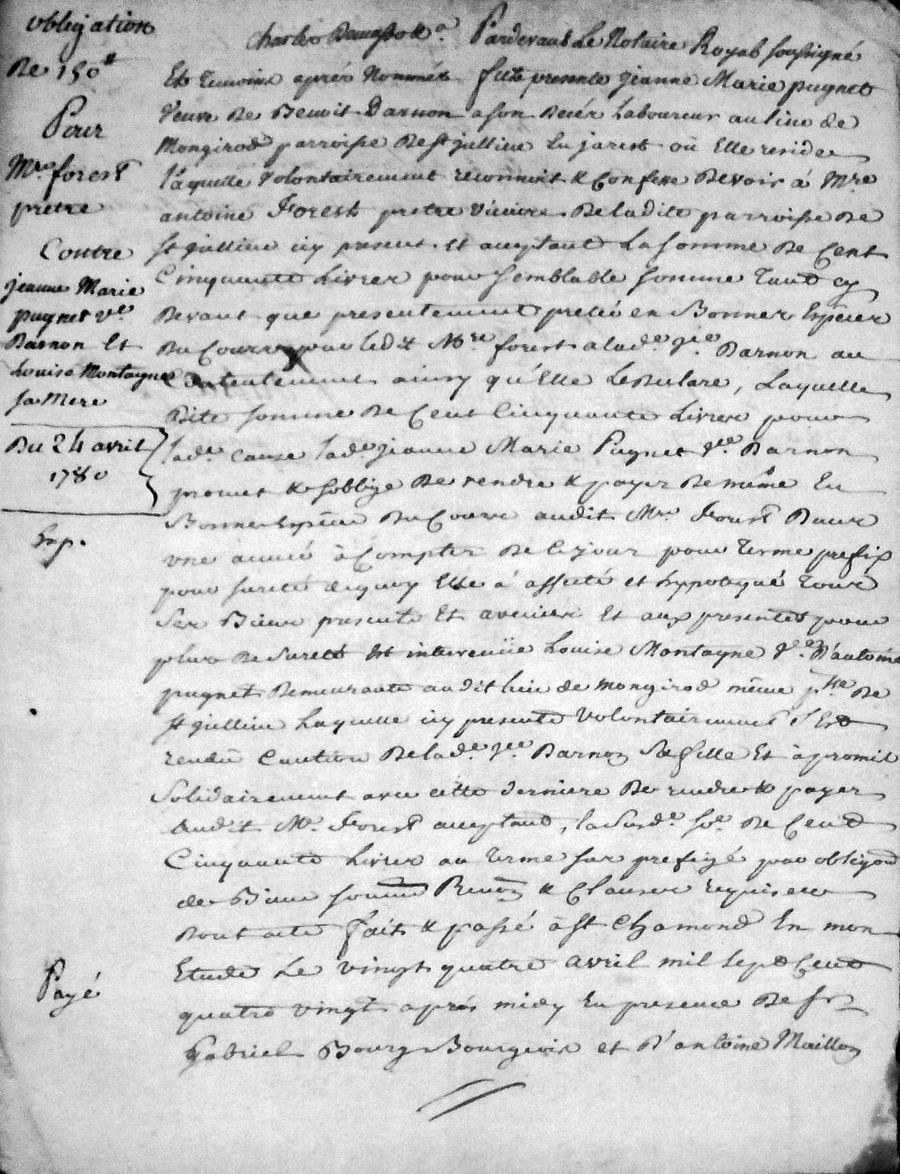 obligation
De 150#
Pour
Mre forest
pretre
Contre
jeanne Marie
pugnet ve
Darnon Et
Louise Montagne
sa Mere
Du 24 avril
1780
Exp.
Payé
Charles Pardevant Le Notaire Royal soussigné
Et temoins aprés Nommés fute presente jeanne Marie pugnet
Veuve De Benoit Darnon a son decés Laboureur au lieu de
Mongirod parroisse De st jullien En jarest où Elle reside
Laquelle Volontairement reconnoit & Confesse Devoir à Mre
antoine Forest pretre Vicaire De ladite parroisse De
st jullien icy present Et aceptant La somme De Cent
Cinquante Livres pour semblable somme Tant cy
Devant que presentement pretée en Bonnes Espéces
Du Cours par ledit Mre forest a lade jne Darnon au
Contentement ainsy qu'Elle Le Declare, Laquelle
Dite somme De Cent Cinquante Livres pour
lade cause lade jeanne Marie Pugnet Ve Darnon
promet & s'oblige De rendre & payer De même En
Bonnes Espéces Du Cours audit Mre Forest Dans
une année à Compter De Ce jour pour terme prefix
pour sureté de quoy Elle à affecté et hypotequé Tous
Ses Biens presents Et avenirs Et aux presentes pour
plus De Sureté Est intervenüe Louise Montagne Ve D'antoine
pugnet Demeurante audit lieu de mongirod même psse De
st jullien Laquelle icy presente Volontairement s'Est
rendüe Caution De lade jne Darnon Sa fille Et à promit
Solidairement avec cette derniere De rendre & payer
Audit Mre Forest aceptant, la susde se De Cent
Cinquante Livres au terme sus prefigé par obligaon
de Biens soumon Renon & Clauses requises
Dont acte fait & passé à st Chamond En mon
Etude Le vingt quatre avril mil Sept Cent
quatre vingt aprés midy En presence De sr
Gabriel Bourg Bourgeois et D'antoine Maillon